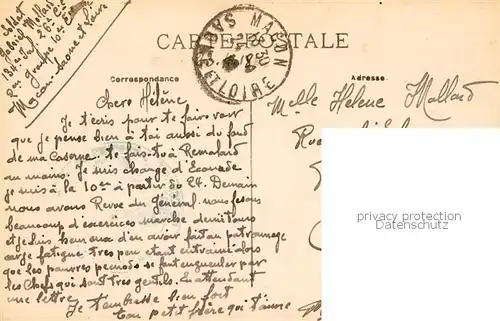 Soldat
Gabriel Mollard
134e 26e
2me groupe 10e
Macon Saone et Loire
CARTE POSTALE
MACON
SAONE ET LOIRE
Correspondance
Adresse
Chere Hélène
Je t'écris pour te faire voir
que je pense bien à toi aussi du fond
de ma Caserne. te fais-tu à Remalard
au moins. Je suis change d'Escouade
je suis à la 10me à partir du 24. Demain
nous avons Revue du Général. nous fesons
beaucoup d'exercices marche demi tours
et je suis heureux d'en avoir fait au patronage
car je fatigue tres peu etant entrainé alors
que les pauvres se font engueuler par
les Chefs qui sont tres gentils. En attendant
une lettre Je t'embrasse bien fort
Ton petit frère qui t'aime
Melle Helene Mallard
privacy protection
Datenschutz